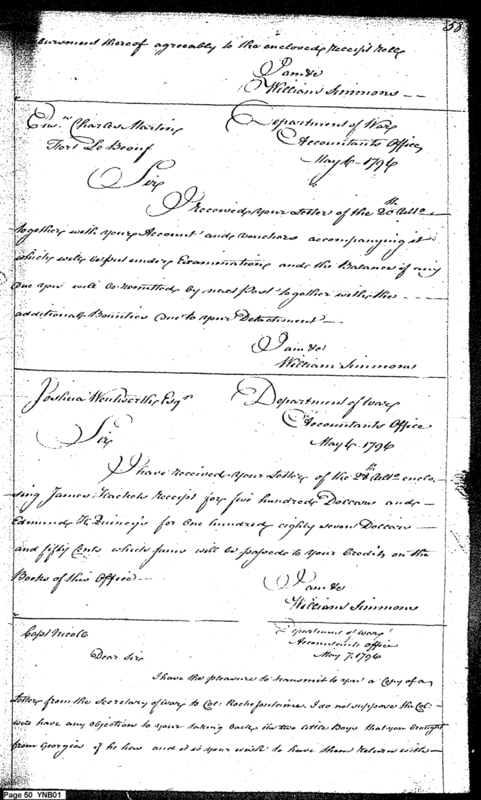 58
bursment thereof agreeably to the enclosed Receipt Rolls
I am &c
William Simmons
Ensn. Charles Martin
Fort Le Beouf
Department of War
Accountants Office
May 6. 1796
Sir
I received your Letter of the 20th Ulto
together with your Account and vouchers accompanying it
which will be put under Examination and the Balance if any
due you will be remitted by next Post together with the
additional Bounties due to your Detachment
I am &c
William Simmons
Joshua Wentworth Esqr
Department of War
Accountants Office
May 6. 1796
Sir
I have received your Letter of the 28th Ulto enclo-
sing James Hackets Receipt for five hundred Dollars and
Edmund H. Quincy's for One hundred eighty seven Dollars
and fifty Cents which sums will be passed to your Credit on the
Books of this Office
I am &c
William Simmons
Capt Nicoll
Department of War
Accountants Office
May 7. 1796
Dear Sir
I have the pleasure to transmit to you a Copy of a
Letter from the Secretary of War to Col: Rochefontaine. I do not suppose the Col:
will have any objection to your taking back the two little Boys that you brought
from Georgia if he has and it is your wish to have them return with
Page 50 YNB01